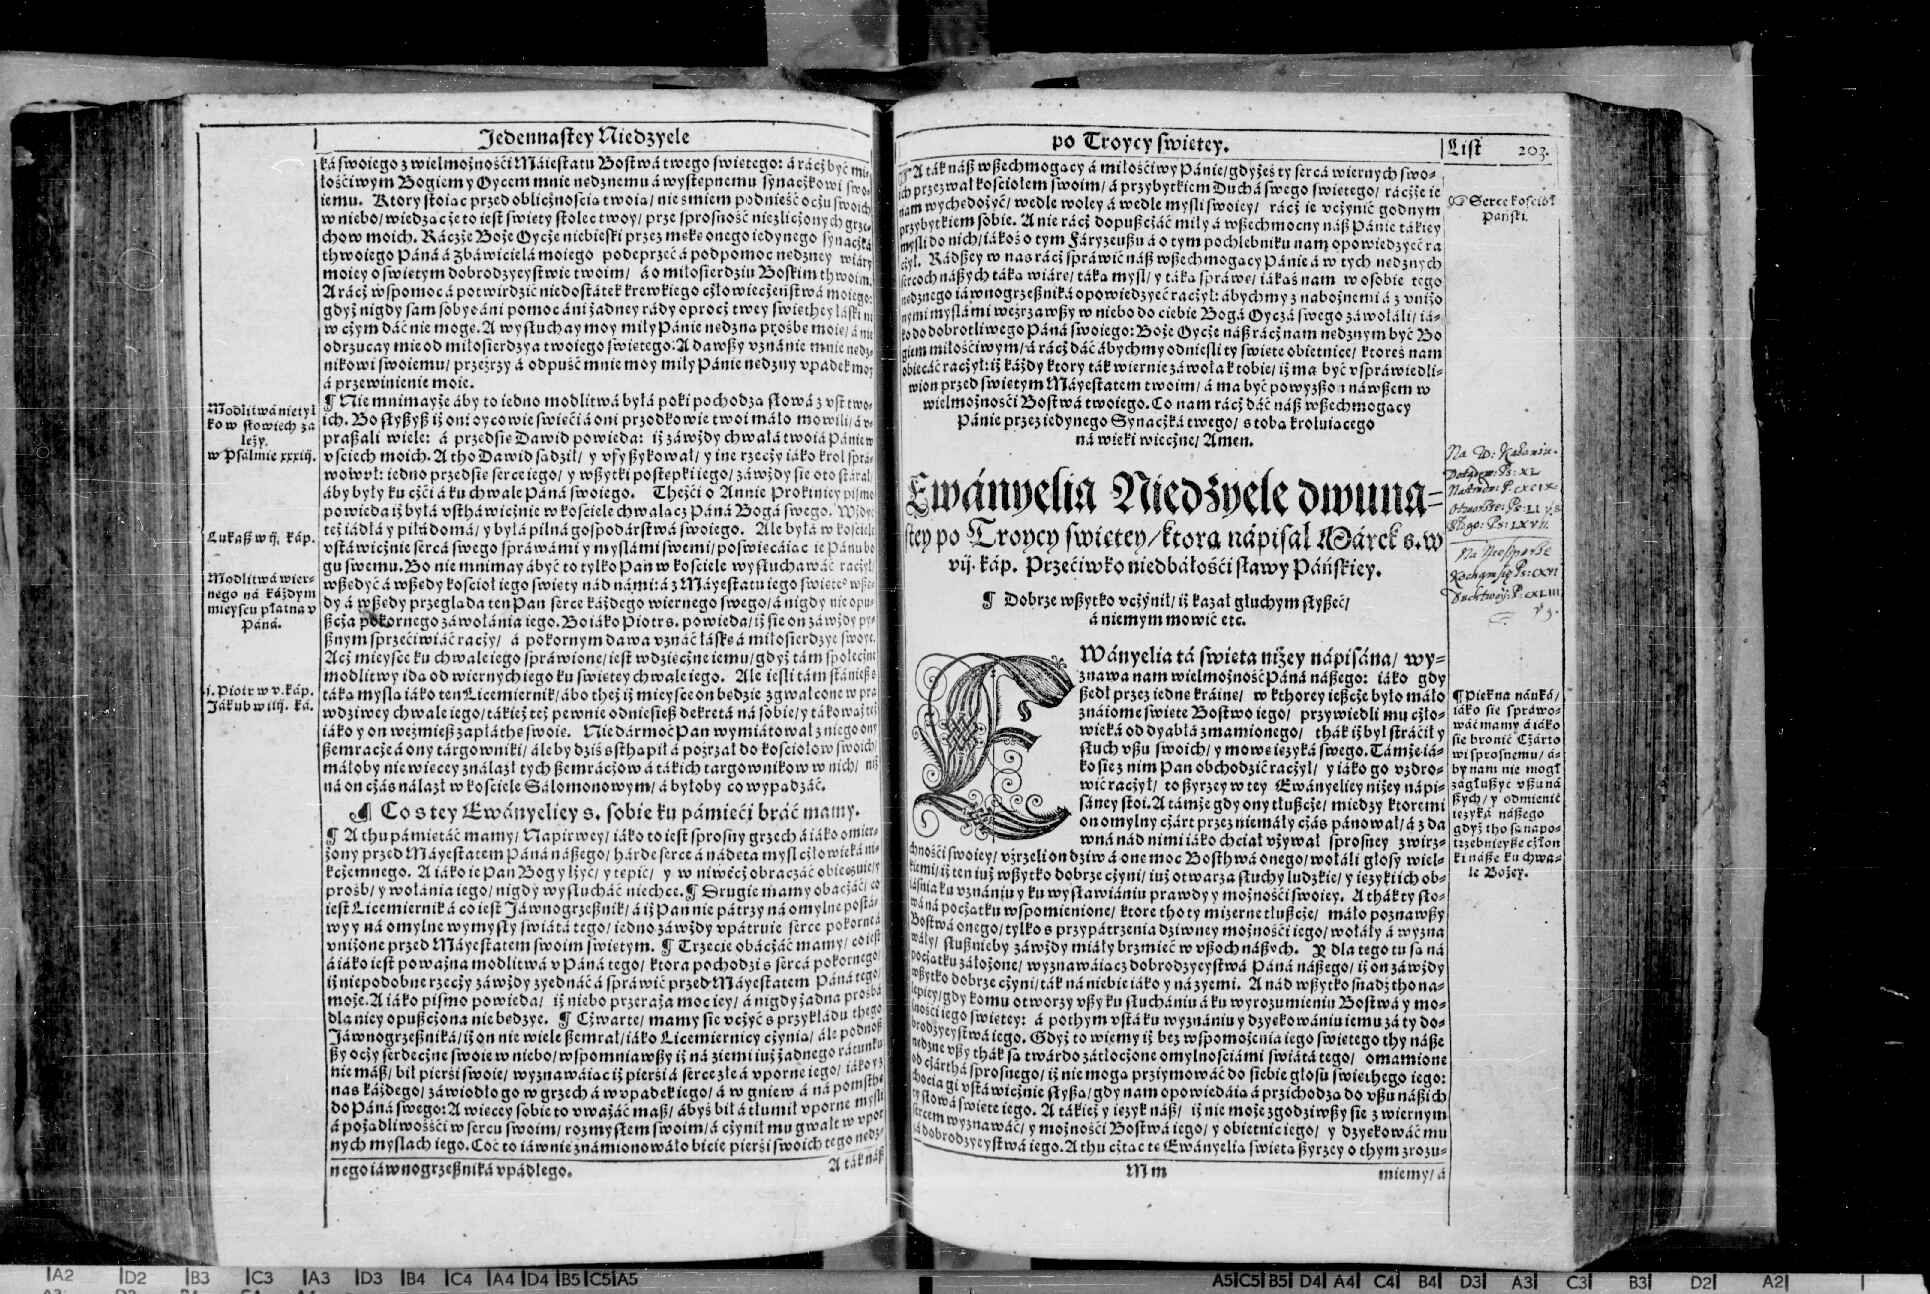 Jedennastey Niedzyele
ká swoiego z wielmożnośći Máiestatu Bostwá twego swietego: á rácż być mi-
łośćiwym Bogiem y Oycem mnie nedznemu á wystepnemu synacżkowi swo-
iemu. Ktory stoiac przed oblicżnośćia twoia/ nie smiem podnieść ocżu swoich
w niebo/ wiedzac że to iest swiety stolec twoy/ prze sprosność niezlicżonych grze-
chow moich. Rácżże Boże Oycże niebieski przez meke onego iedynego synacżká
thwoiego Páná á Zbáwicielá moiego podeprzeć á podpomoc nedzney wiáry
moiey o swietym dobrodzyeystwie twoim/ á o miłosierdziu Boskim thwoim.
A rácż wspomoc á potwirdzić niedostátek krewkiego cżłowiecżeństwá moiego:
gdyż nigdy sam sobye áni pomoc áni żadney rády oprocż twey swiethey łáski
w cżym dáć nie moge. A wysłuchay moy miły Pánie nedzna prośbe moie/ á nie
odrzucay mie od miłosierdzya twoiego swietego: A dawszy vznánie mnie nedz-
nikowi swoiemu/ przeźrzy á odpuść mnie moy miły Pánie nedzny vpadek moy
á przewinienie moie.
¶ Nie mnimayże áby to iedno modlitwá byłá poki pochodza słowá z vst two-
ich. Bo słyszysz iż oni oycowie swieći á oni przodkowie twoi máło mowili/ á v-
praszáli wiele: á przedsie Dawid powieda: iż záwżdy chwałá twoiá Pánie w
vsciech moich. A tho Dawid sadził/ y vfysykował/ y ine rzecży iáko krol sprá-
wował: iedno przedsie serce iego/ y wszytki postepki iego/ záwżdy sie o to stárał/
áby były ku cżći á ku chwale Páná swoiego. Theżći o Annie Prokinicy pismo
powieda iż byłá vstháwicżnie w kościele chwalacz Páná Bogá swego. Wżdy
też iádłá y piłá domá/ y byłá pilná gospodárstwá swoiego. Ale byłá w kościele
vstáwicżnie sercá swego spráwámi y myslámi swemi/ poswiecáiac ie Pánu bo-
gu swemu. Bo nie mnimay ábyć to tylko Pan w kościele wysłuchawáć racżył/
wszedyć á wszedy kośćioł iego swiety nád námi: á z Máyestatu iego swiete° wsze-
dy á wszedy przeglada ten Pan serce káżdego wiernego swego/ á nigdy nie opu-
szcża pokornego záwołánia iego. Bo iáko Piotr s. powieda/ iż sie on záwżdy py-
sznym sprzećiwiáć racży/ á pokornym dawa vznáć łáske á miłosierdzye swoie.
Acż mieysce ku chwale iego spráwione/ iest wdziecżne iemu/ gdyż tám społecżne
modlitwy ida od wiernych iego ku swietey chwale iego. Ale iesli tám stániesz s
táka mysla iáko ten Licemiernik/ ábo theż iż mieysce on bedzie zgwałcone w prá
wdziwey chwale iego/ tákież też pewnie odniesiesz dekretá ná sobie/ y tákoważ też
iáko y on weżmiesz zapłáthe swoie. Niedármoć Pan wymiátował z niego ony
szemracże á ony tárgowniki/ ále by dziś sthąpił á poźrzał do kośćiołow swoich/
máłoby niewiecey ználazł tych szemrácżow á tákich targownikow w nich/ niż
ná on cżás nálazł w kościele Sálomonowym/ á byłoby co wypádzáć.
¶ Co s tey Ewányeliey s. sobie ku pámiećí bráć mamy.
¶ A thu pámietáć mamy/ Napirwey/ iáko to iest sprosny grzech á iáko omier-
żony przed Máyestatem Páná nászego/ hárde serce á nádeta mysl cżłowieká ni-
kcżemnego. A iáko ie Pan Bog y lży/ y tepić/ y w niwecż obracżáć obiecznie/ y
prośb/ y wołánia iego/ nigdy wysłucháć niechce. ¶ Drugie mamy obacżáć/ co
iest Licemierniká co iest Jawnogrzesznik/ á iż Pan nie pátrzy ná omylne postá-
wy y ná omylne wymysły swiátá tego/ iedno záwżdy vpátruie serce pokorne á
vniżone przed Máyestatem swoim swietym. ¶ Trzecie obácżáć mamy/ co iest
á iáko iest poważna modlitwá v Páná tego/ ktora pochodzi s sercá pokornego/
iż niepodobne rzecży záwżdy zyednáć á spráwić przed Máyestatem Páná tego/
może. A iáko pismo powieda/ iż niebo przeraża moc iey/ á nigdy żadna prośbá
dla niey opuszcżona nie bedzye. ¶ Cżwarte/ mamy sie vcżyć s przykłádu thego
Jawnogrzeszniká/ iż on nie wiele szemrał/ iáko Licemiernicy cżynia/ ále podnosz
szy ocży serdecżne swoie w niebo/ wspomniawszy iż ná ziemi iuż żadnego rátunku
nie mász/ bił pierśi swoie/ wyznawáiac iż pierśi á serce złe á vporne iego/ iáko y z
nas káżdego/ záwiodło go w grzech á w vpadek iego/ á w gniew á ná pomsthe
do Páná swego: A wiecey sobie to vważáć masz/ ábyś bił á tłumił vporne mysli
á pożadliwoścí w sercu swoim/ rozmysłem swoim/ á cżynił mu gwałt w vpor
nych myslach iego. Coć to iáwnie známionowáło bicie pierśi swoich tego nedz-
nego iawnogrzeszniká vpádłego.
A ták nász
Modlitwá nie tyl
ko w słowiech zá
leży.
w Psálmie xxxiij.
Łukasz w ij. káp.
Modlitwá wier-
nego ná káżdym
mieyscu płatna v
Páná.
j. Piotr w v. káp.
Jákub w iiij. ká.
po Troycy swietey.
List 203.
A ták nász wszechmogacy á miłośćiwy Pánie/ gdyżeś ty sercá wiernych swo-
ich przezwał kościołem swoim/ á przybytkiem Duchá swego swietego/ rácżże ie
nam wychedożyć/ wedle woley á wedle mysli swoiey/ rácż ie vcżynić godnym
przybytkiem sobie. A nie rácż dopuszcżáć miły á wszechmocny nász Pánie tákiey
mysli do nich/ iákoś o tym Fáryzeuszu á o tym pochlebniku nam opowiedzyeć ra
cżył. Rádszey w nas rácż spráwić nász wszechmogacy Pánie á w tych nedznych
sercoch nászych táka wiáre/ táka mysl/ y táka spráwe/ iákaś nam w osobie tego
nedznego iáwnogrzeszniká opowiedzyeć racżył: ábychmy z nabożnemi á z vniżo
nymi myslámi weźrzawszy w niebo do ciebie Bogá Oycá swego záwołáli/ iá-
ko do dobrotliwego Páná swoiego: Boże Oycże nász rácż nam nedznym być Bo
giem miłośćiwym/ á rácż dáć ábychmy odnieśli ty swiete obietnice/ ktoreś nam
obiecáć racżył: iż káżdy ktory ták wiernie záwoła k tobie/ iż ma być vspráwiedli-
wion przed swietym Máyestatem twoim/ á ma być powyzszon náwszem w
wielmożnośći Bostwá twoiego. Co nam rácż dáć nász wszechmogacy
Pánie przez iedynego Synacżká twego/ s toba kroluiacego
ná wieki wiecżne/ Amen.
Ewányelia Niedżyelę dwuna-
stey po Troycy swietey/ ktora nápisał Márek s. w
vij. káp. Przećiwko niedbáłośći sławy Páńskiey.
¶ Dobrze wszytko vcżynił/ iż kazał głuchym słyszeć/
á niemym mowić etc.
EWányelia tá swieta niżey nápisána/ wy-
znawa nam wielmożność Páná nászego: iáko gdy
szedł przez iedne kráine/ w kthorey ieszcże było máło
známe swiete Bostwo iego/ przywiedli mu cżło-
wieká od dyabłá zmamionego/ thák iż był stráćił y
słuch vszu swoich/ y mowe iezyká swego. Támże iá-
ko sie z nim Pan obchodzić racżył/ y iáko go vzdro-
wić racżył/ to szyrzey w tey Ewányeliey niżey nápi-
sáney stoi. A támże gdy ony tłuszcże/ miedzy ktoremi
on omylny cżárt przez niemáły cżás pánował/ á z da
wná nád nimi iáko chciał vżywał sprosney zwirz-
chnośći swoiey/ vźrzeli on dziw á one moc Bosthwá onego/ wołáli głosy wiel-
kiemi/ iż ten iuż wszytko dobrze cżyni/ iuż otwarza słuchy ludzkie/ y iezyki ich ob-
iáśnia ku vznániu y ku wysławiániu prawdy y możnośći swoiey. A thák ty sło-
wá ná pocżatku wspomienione/ ktore tho ty mizerne tłuszcże/ máło poznawszy
Bostwá onego/ tylko s przypátrzenia dziwney możnośći iego/ wołáły á wyzna
wáły/ słusznieby záwżdy miáły brzmieć w vszoch nászych. Y dla tego tu sa ná
pocżatku záłożone/ wyznawáiacz dobrodzyeystwá Páná nászego/ iż on záwżdy
wszytko dobrze cżyni/ ták ná niebie iáko y ná zyemi. A nád wszytko snadź tho na-
lepiey/ gdy komu otworzy vszy ku słuchániu á ku wyrozumieniu Bostwá y mo-
żnośći iego swietey: á pothym vstá ku wyznániu y dzyekowániu iemu zá ty do-
brodzyeystwá iego. Gdyż to wiemy iż bez wspomożenia iego swietego thy násze
nedzne vszy thák sa twárdo zátłocżone omylnośćiámi swiátá tego/ omamione
od cżárthá sprosnego/ iż nie moga przyimowáć do siebie głosu swiethego iego:
chocia gi vstáwicżnie słyszá/ gdy nam opowiedáia á przychodza do vszu nászich
ty słowá swiete iego. A tákież y iezyk nász/ iż nie może zgodziwszy sie z wiernym
sercem wyznawáć/ y możnośći Bostwá iego/ y obietnic iego/ y dzyekowáć mu
zá dobrodzyeystwá iego. A thu cżtac te Ewányelia swieta szyrzey o thym zrozu-
Mm
miemy/ á
Serce kościoł
Páński.
¶ Piekna náuká/
iáko sie spráwo-
wáć mamy á iáko
sie bronić Cżárto
wi sprosnemu/ á-
by nam nie mogł
zágłuszyć vszu ná
szych/ y odmienić
iezyká nászego
gdyż tho sa napo-
trzebnieysze cżłon
ki násze ku chwa-
le Bożey.